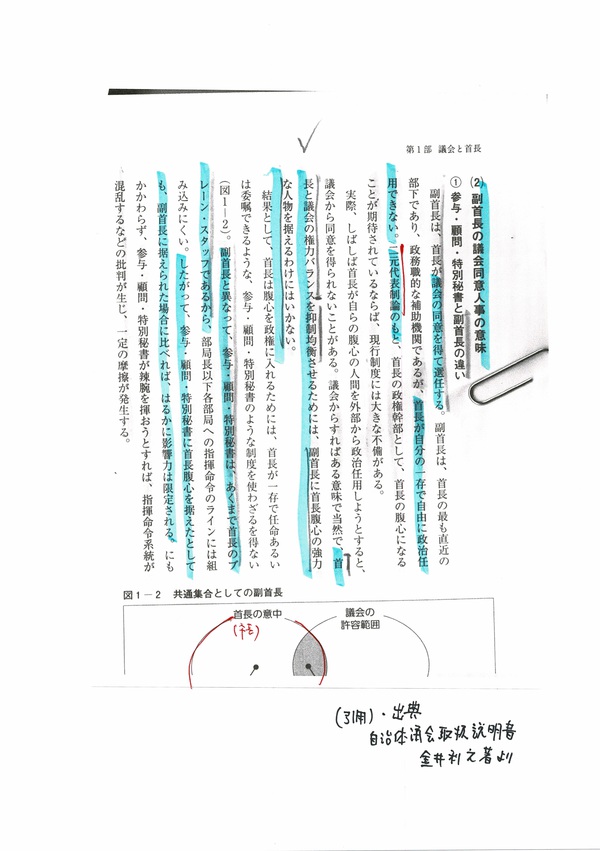 第1部 議会と首長
(2) 副首長の議会同意人事の意味
① 参与・顧問・特別秘書と副首長の違い
副首長は、首長が議会の同意を得て選任する。副首長は、首長の最も直近の
部下であり、政務職的な補助機関であるが、首長が自分の一存で自由に政治任
用できない。二元代表制論のもと、首長の政権幹部として、首長の腹心になる
ことが期待されているならば、現行制度には大きな不備がある。
実際、しばしば首長が自らの腹心の人間を外部から政治任用しようとすると、
議会から同意を得られないことがある。議会からすればある意味で当然で、首
長と議会の権力バランスを抑制均衡させるためには、副首長に首長腹心の強力
な人物を据えるわけにはいかない。
結果として、首長は腹心を政権に入れるためには、首長が一存で任命あるい
は委嘱できるような、参与・顧問・特別秘書のような制度を使わざるを得ない
(図1-2)。副首長と異なって、参与・顧問・特別秘書は、あくまで首長のブ
レーン・スタッフであるから、部局長以下各部局への指揮命令のラインには組
み込みにくい。したがって、参与・顧問・特別秘書に首長腹心を据えたとして
も、副首長に据えられた場合に比べれば、はるかに影響力は限定される。にも
かかわらず、参与・顧問・特別秘書が辣腕を揮おうとすれば、指揮命令系統が
混乱するなどの批判が生じ、一定の摩擦が発生する。
図1-2 共通集合としての副首長
首長の意中
議会の
許容範囲
(引用)・出典
自治体議会取扱説明書
金井利之著より